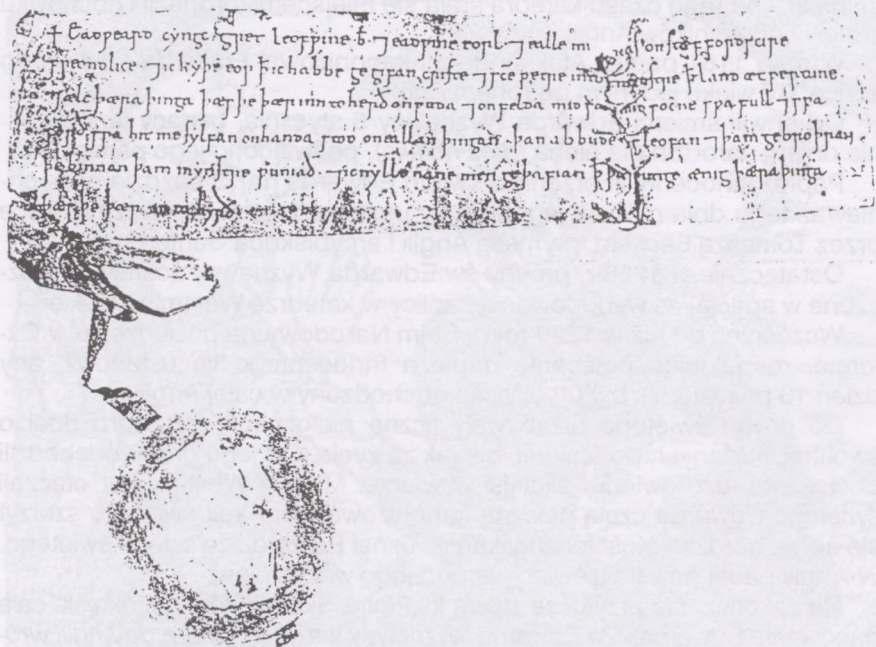 + Eadƿeard cyngc gret Leofƿine b. ⁊ Eadƿine eorl ⁊ ealle on Stæffordscire
freondlice ⁊ ic kyþe eoƿ þ ic habbe gegifan criste ⁊ sce petre þ land æt perтune
⁊ ælc þæra þinga þæs þe þær inn to herð on ƿuda ⁊ on felda mid socne sƿa full ⁊ sƿa
forð sƿa hit me sylfan on handa stod on eallan þingan þan abbude to bigleofan ⁊ þam gebroðran
þe binnan þam mynstre ƿuniað ⁊ ic nylle nane men geþafian þ þær ut geonge ænig þæra þinga
þæs þe þær inn to hyrð